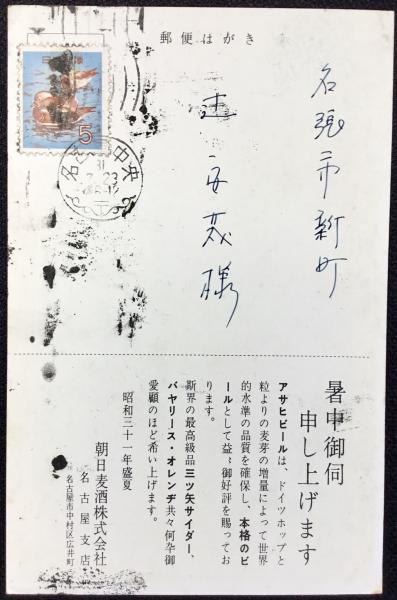 郵便はがき
名張市新町
辻安茂様
5
名古屋中央
31
7.23
暑中御伺
申し上げます
アサヒビールは、ドイツホップと
粒よりの麦芽の増量によって世界
的水準の品質を確保し、本格のビ
ールとして益々御好評を賜ってお
ります。
斯界の最高級品三ツ矢サイダー、
バヤリース・オレンヂ共々何卒御
愛顧のほど希い上げます。
昭和三十一年盛夏
朝日麦酒株式会社
名古屋支店
名古屋市中村区広井町